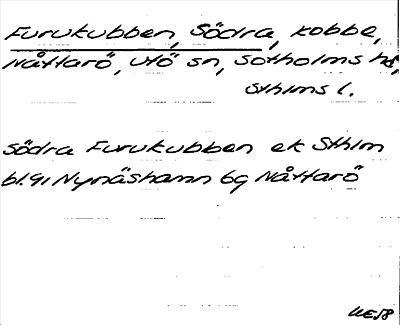 Furukubben, Södra, kobbe,
Nåttarö, Utö sn, Sotholms hd,
Sthlms l.
Södra Furukubben ek Sthlm
bl.91 Nynäshamn 6g Nåttarö